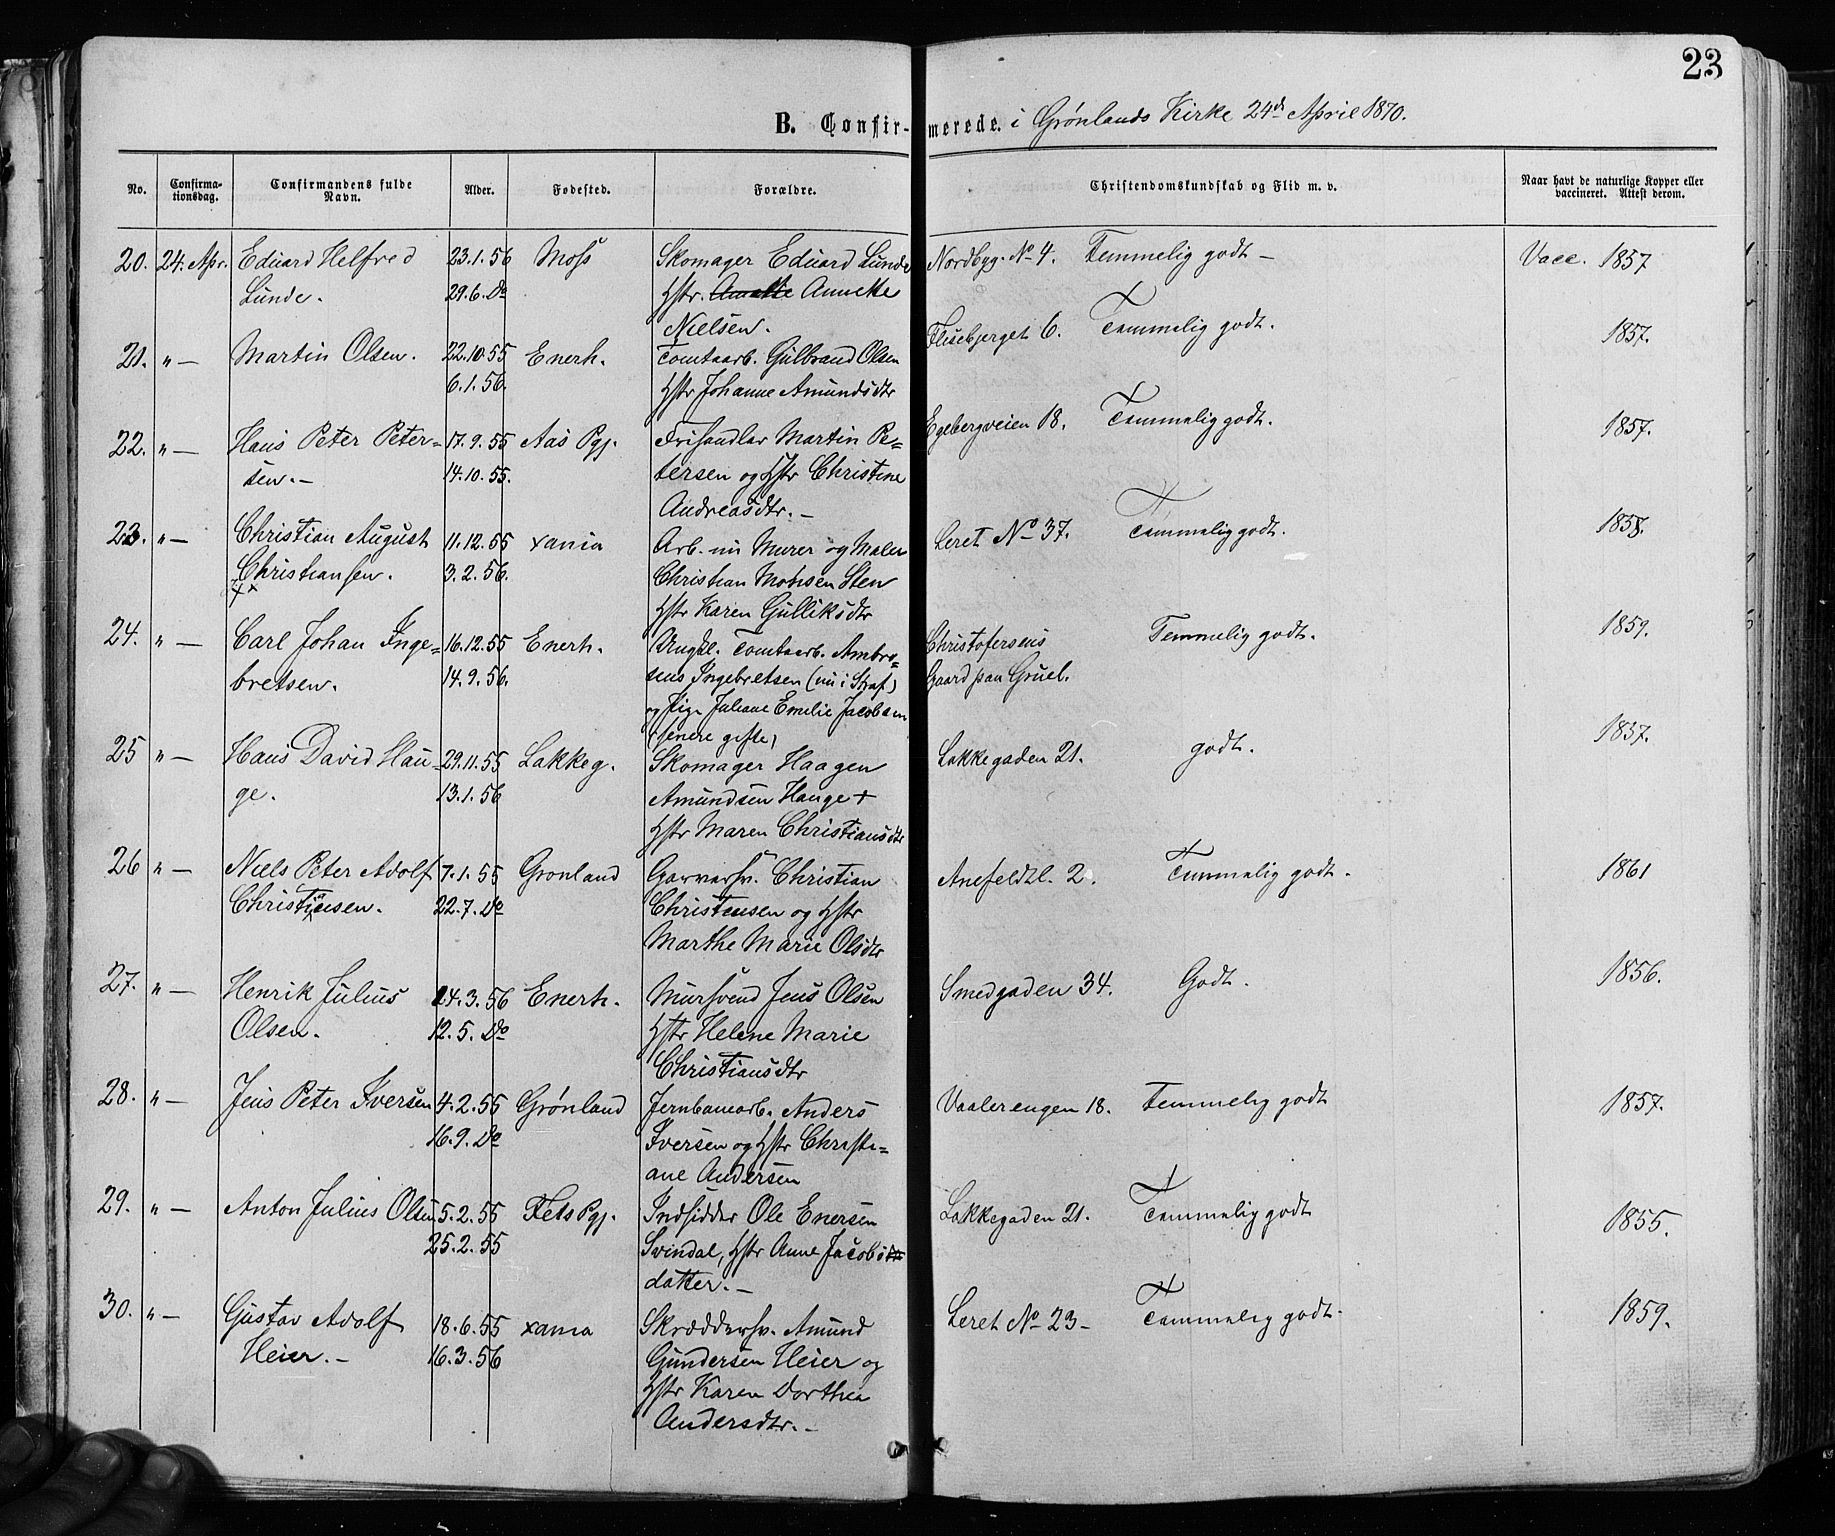 23
B. Confirmerede. i Grønlands Kirke 24d April 1870.
No. Confirmationsdag. Confirmandens fulde Navn. Alder. Fødested. Forældre. Christendomskundskab og Flid m. v. Naar havt de naturlige Kopper eller vaccineret. Attest derom.
20. 24. Apr. Eduard Helfred 23.1.56 Moss Skomager Eduard Lunde Nordbyg. No 4. Temmelig godt – Vacc. 1857
Lunde. 29.6. Do Hstr. Anneke
Nielsen.
21. " — Martin Olsen. 22.10.55 Enerh. Tomtaarb. Gulbrand Olsen Flisebjerget 6. Temmelig godt. 1857.
6.1.56. Hstr Johanne Amundsdtr
22. " — Hans Peter Peter- 17.9.55 Aas Pgj. Frihandler Martin Pe- Egebergveien 18. Temmelig godt. 1857.
sen. – 14.10.55. tersen og Hstr Christine
Andreasdtr. –
23. " — Christian August 11.12.55 xania Arb. nu Murer og Maler Leret No 37. Temmelig godt. 1858.
Christiansen. 3.2.56. Christian Sten
Hstr Karen Gulliksdtr
24. " — Carl Johan Inge- 16.12.55 Enerh. Ungkl. Tomtaarb. Ambro- Christofersens Temmelig godt. 1859.
bretsen. 14.9.56. sius Ingebretsen (nu i Straf) Gaard paa Grucl.
og Pige Juliane Emilie Jacobsen
(senere gifte)
25 " — Hans David Hau- 29.11.55 Lakkeg. Skomager Haagen Lakkegaden 21. godt. 1857.
ge. 13.1.56 Amundsen Hauge +
Hstr Maren Christiansdtr
26 " — Niels Peter Adolf 7.1.55 Grønland Garversv. Christian Anefeldtl. 2. Temmelig godt. 1861
Christensen. 22.7. Do Christensen og Hstr
Marthe Marie Olsdtr
27. " — Henrik Julius 24.3.56 Enerh. Mursvend Jens Olsen Smedgaden 34. Godt. 1856.
Olsen. 12.5. Do Hstr Helene Marie
Christiansdtr
28. " — Jens Peter Iversen 4.2.55 Grønland Jernbanearb. Anders Vaalerengen 18. Temmelig godt 1857.
16.9. Do Iversen og Hstr Christi-
ane Andersen
29. " — Anton Julius Olsen 5.2.55 Fets Pgj. Indsidder Ole Enersen Lakkegaden 21. Temmelig godt 1855.
25.2.55 Svindal, Hstr Anne Jacobs
datter. –
30. " — Gustav Adolf 18.6.55 xania Skræddersv. Amund Leret No 23 – Temmelig godt. 1859.
Heier. – 16.3.56 Gundersen Heier og
Hstr Karen Dorthea
Andersdtr. –